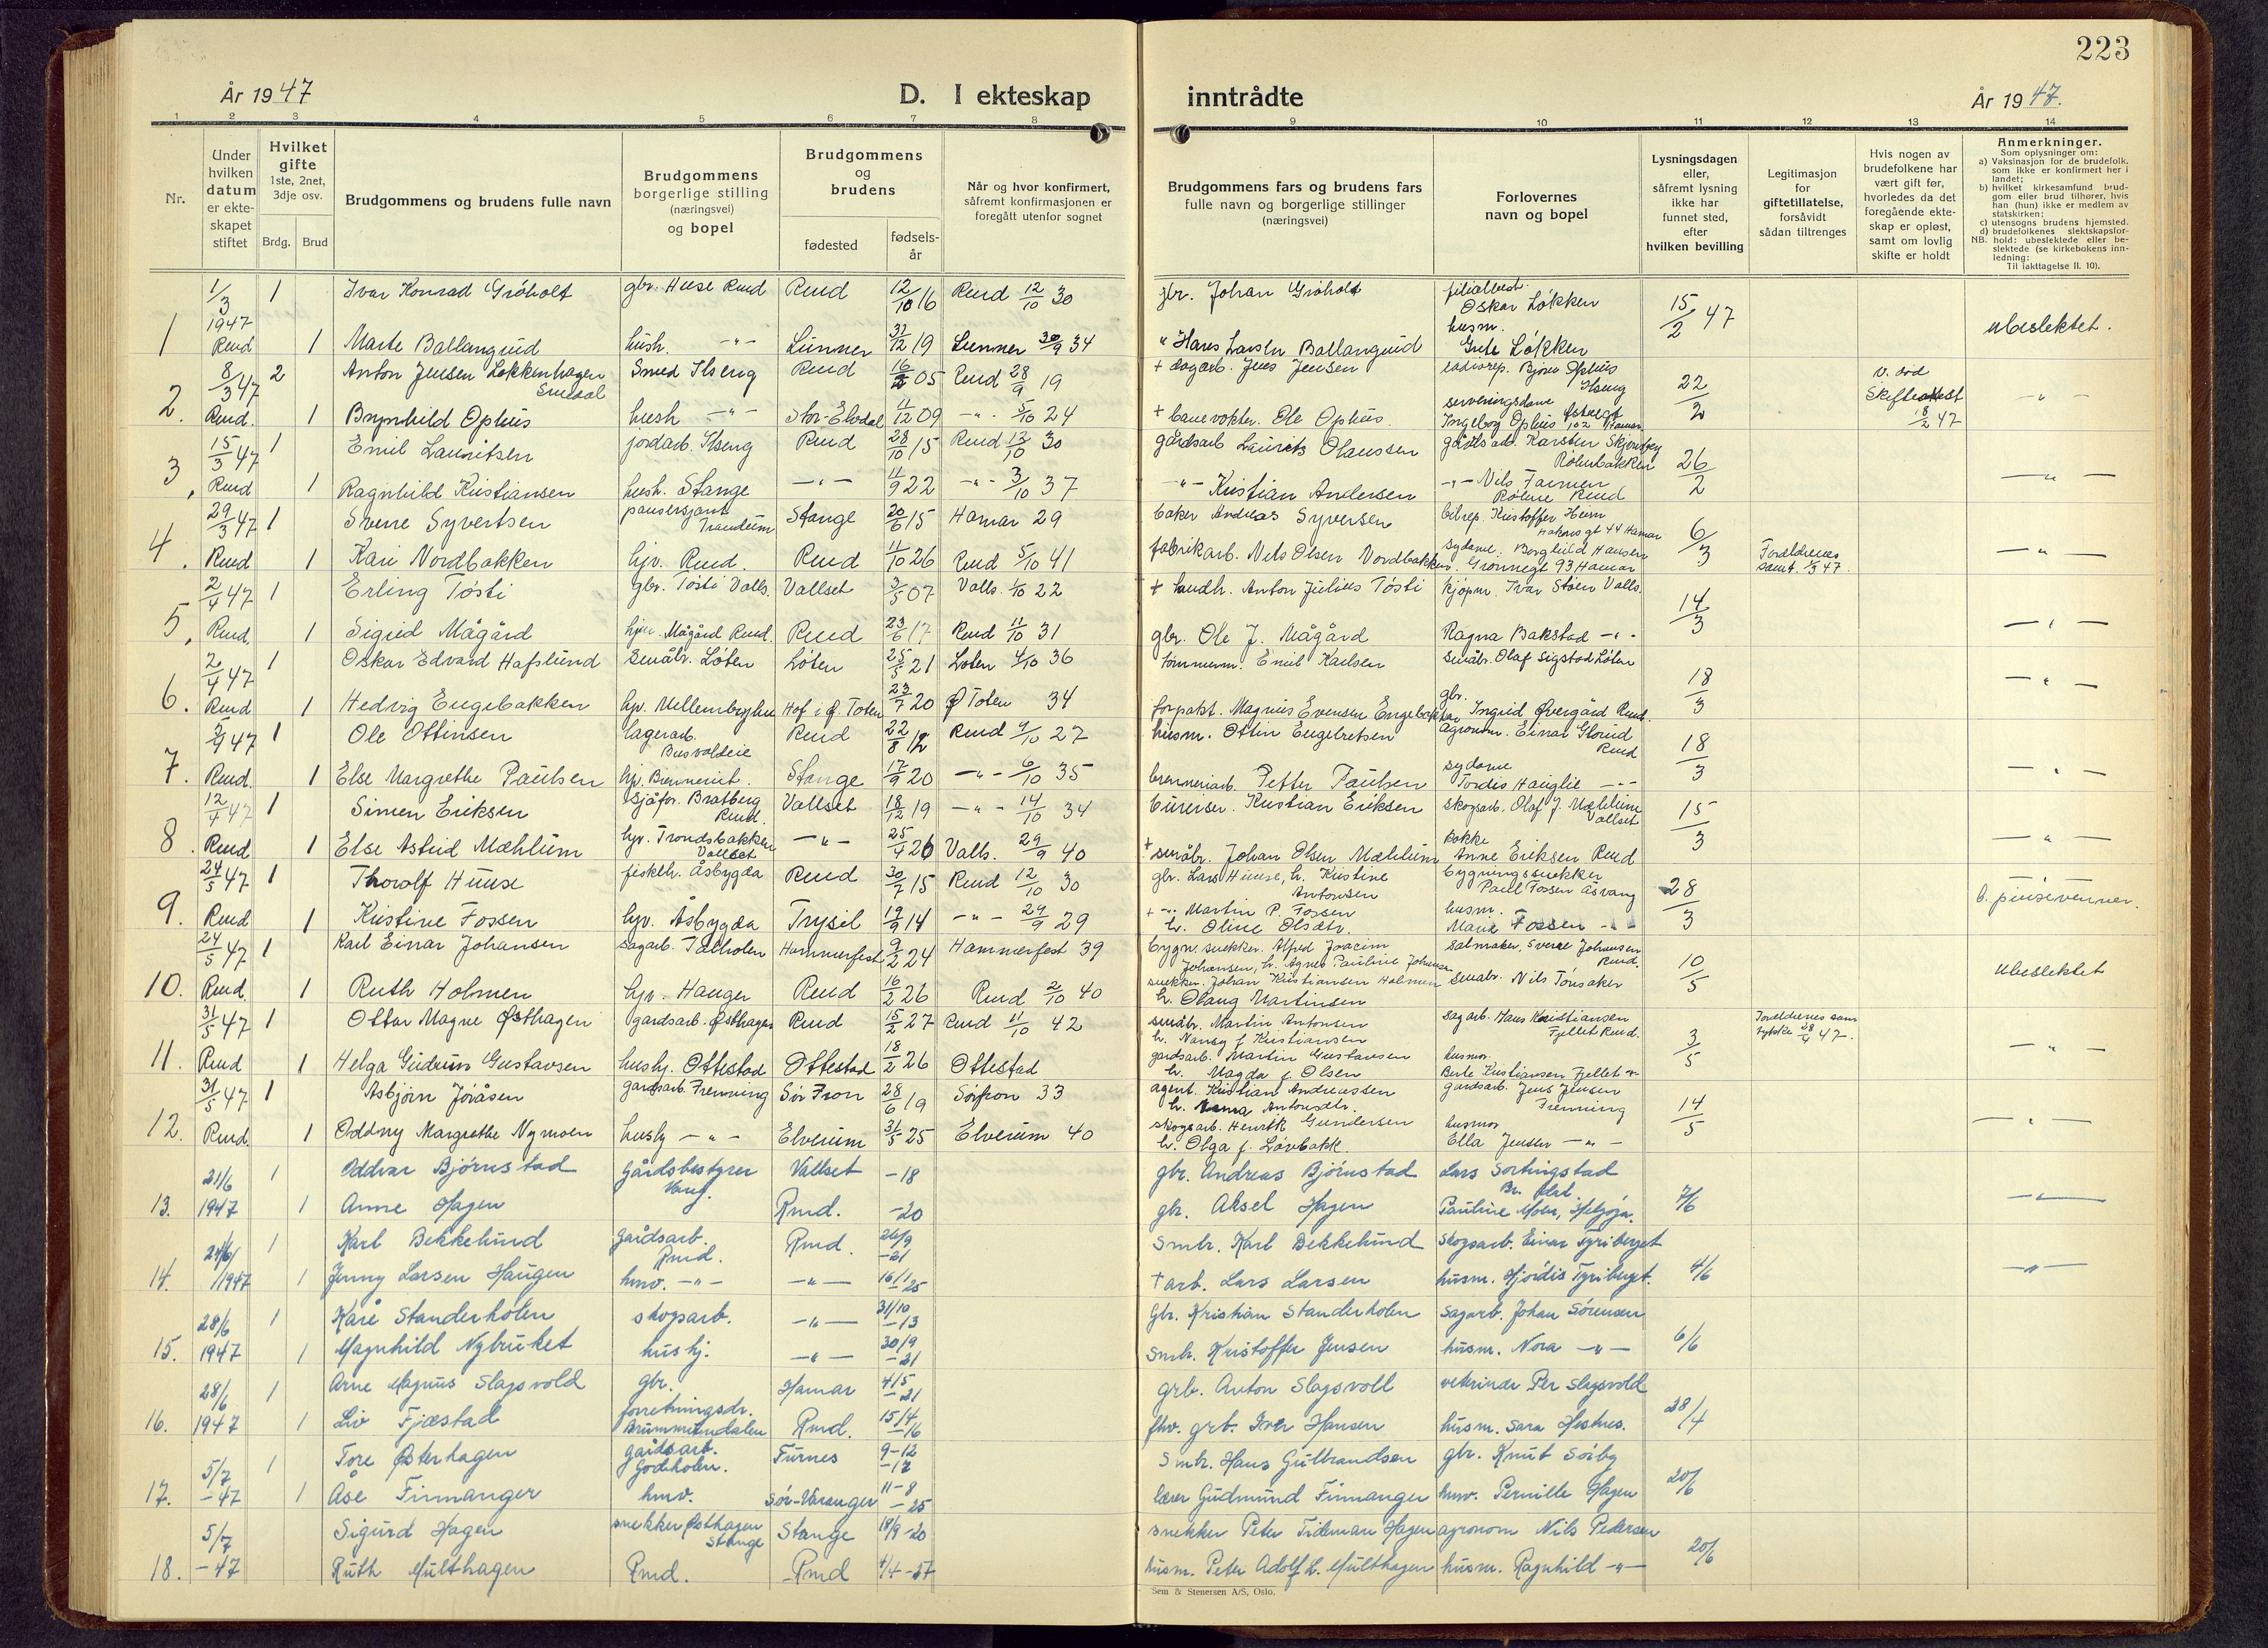 223
År 1947
D. I ekteskap
inntrådte
År 1947.
1 2 3 4 5 6 7 8 9 10 11 12 13 14
Nr.
Under hvilken datum er ekteskapet stiftet
Hvilket gifte 1ste, 2net, 3dje osv.
Brdg. Brud
Brudgommens og brudens fulle navn
Brudgommens borgerlige stilling (næringsvei) og bopel
Brudgommens og brudens
fødested
fødsels-år
Når og hvor konfirmert, såfremt konfirmasjonen er foregått utenfor sognet
Brudgommens fars og brudens fars fulle navn og borgerlige stillinger (næringsvei)
Forlovernes navn og bopel
Lysningsdagen eller, såfremt lysning ikke har funnet sted, efter hvilken bevilling
Legitimasjon for giftetillatelse, forsåvidt sådan tiltrenges
Hvis nogen av brudefolkene har vært gift før, hvorledes da det foregående ekteskap er opløst, samt om lovlig skifte er holdt
Anmerkninger.
Som oplysninger om:
a) Vaksinasjon for de brudefolk, som ikke er konfirmert her i landet;
b) hvilket kirkesamfund brudgom eller brud tilhører, hvis han (hun) ikke er medlem av statskirken;
c) utensogns brudens hjemsted.
d) brudefolkenes slektskapsforhold: ubeslektede eller beslektede (se kirkebokens innledning:
NB.
Til iakttagelse II. 10).
1/3 1 Ivar Konrad Gröholt gbr. Huse Rmd Rmd 12/10 16 Rmd 12/10 30 gbr. Johan Gröholt Oskar Løkken 15/2 47 ubeslektet.
1 1947 Rmd 1 Marte Ballangrud hush. -"- Lunner 31/12 19 Lunner 30/9 34 " Hans Larsen Ballangrud husm. Løkken
8/3 47 2 Anton Jensen Løkkenhagen Smed Ilseng Rmd 05 Rmd 28/9 19 + dagarb. Jens Jensen Bjørn Ophus Ilseng 22/2 Skifteattest 18/2 47 -"-
2. Rmd. 1 Brynhild Ophus hush -"- Stor-Elvdal 11/12 09 -"- 5/10 24 + banevokter. Ole Ophus. serveringsdame Ingeborg Ophus
15/3 47 1 Emil Lauritsen jordarb. Ilseng Rmd 28/10 15 Rmd 12/10 30 gårdsarb Laurits Olaussen gårdsarb. Karsten 26/2 -"-
3. Rmd 1 Ragnhild Kristiansen hush. Stange -"- 11/9 22 -"- 3/10 37 -"- Kristian Andersen -"- Nils
29/3 47 1 Sverre Syvertsen Stange 20/6 15 Hamar 29 baker Andreas Syversen bilrep. Kristoffer Heim 6/3 Foreldrenes samt. 1/3 47 -"-
4. Rmd 1 Kari Nordbakken hjv. Rmd. Rmd 11/10 26 Rmd 5/10 41 fabrikarb. Nils Olsen Nordbakken sydame. Borghild Hansen Grønnegt 93 Hamar
2/4 47 1 Erling Tøsti gbr. Tøsti Valls. Vallset 3/5 07 Valls. 1/10 22 + handh. Anton Julius Tøsti kjøpm. Ivar Støen Valls. 14/3 -"-
5. Rmd. 1 Sigrid Mågård hjv. Mågård Rmd. Rmd 23/6 17 Rmd 11/10 31 gbr. Ole J. Mågård Ragna Bakstad -"-
2/4 47 1 Oskar Edvard Hafslund småbr. Løten Løten 25/5 21 Løten 4/10 36 tømmerm. Emil Karlsen småbr. Olaf Sigstad Løten 18/3 -"-
6. Rmd 1 Hedvig Engebakken hjv. Hof i Ø. Toten 23/7 20 Ø Toten 34 forpakt. Magnus Evensen Engebakken gbr. Ingrid Øvergård Rmd.
5/4 47 1 Ole Ottinsen lagerarb. Rmd 22/8 12 Rmd 9/10 27 husm. Ottin Engebretsen agronom. Einar Rmd 18/3 -"-
7. Rmd. 1 Else Margrethe Paulsen hjv. Stange 17/9 20 -"- 6/10 35 brenneriarb. Petter Paulsen sydame Tordis Hauglie -"-
12/4 47 1 Simen Eriksen sjåfør. Bratberg Rmd. Vallset 18/12 19 -"- 14/10 34 Kristian Eriksen skogsarb. Olaf J. Mæhlum Vallset 15/3 -"-
8. Rmd 1 Else Astrid Mæhlum hjv. Trondsbakken Vallset -"- 25/4 26 Valls. 29/9 40 + småbr. Johan Olsen Mæhlum kokke Anne Eriksen Rmd
24/5 47 1 Thorolf Huuse fiskehl. Åsbygda Rmd 30/7 15 Rmd 12/10 30 gbr. Lars Huuse, h. Kristine Antonsen bygningssnekker Paul Fossen Åsvang 28/3 b. pinsevenner.
9. Rmd 1 Kristine Fossen hjv. Åsbygda Trysil 19/9 14 -"- 29/9 29 + -"- Martin P. Fossen h. Oline Olsdtr. husm. Marie Fossen -"-
24/5 47 1 Karl Einar Johansen sagarb. Hammerfest 9/2 24 Hammerfest 39 bygn. snekker. Alfred Joacim Johansen, h. Agnes Pauline Johansen salmaker. Sverre Johansen Rmd. 10/5 ubeslektet
10. Rmd 1 Ruth Holmen hjv. Hauger Rmd 16/2 26 Rmd 2/10 40 snekker. Johan Kristiansen Holmen h. Olaug Martinsen småbr. Nils Tønsaker
31/5 47 1 Ottar Magne Østhagen gardsarb. Østhagen Rmd 15/2 27 Rmd 11/10 42 småbr. Martin Antonsen h. Nancy f Kristiansen sagarb. Hans Kristiansen Fjellet Rmd. 3/5 Foreldrenes samtykke 28/4 47. -"-
11. Rmd 1 Helga Gudrun Gustavsen hushj. Ottestad Ottestad 18/2 26 Ottestad gardsarb. Martin Gustavsen h. Magda f. Olsen husmor Berte Kristiansen Fjellet -"-
31/5 47 1 Asbjørn Jøråsen gardsarb. Frenning Sør Fron 28/6 19 Sørfron 33 agent. Kristian Andreassen h. Anna Antonsdtr. gardsarb. Jens Jensen Frenning 14/5 -"-
12. Rmd 1 Oddny Margrethe Nymoen hushj -"- Elverum 31/5 25 Elverum 40 skogsarb. Henrik Gundersen h. Olga f. Løvbakk. husmor Ella Jensen -"-
21/6 1 Oddvar Bjørnstad Gårdsbestyrer Vang. Vallset -18 gbr. Andreas Bjørnstad Lars Sortingstad 7/6 -"-
13. 1947 1 Anne Hagen Rmd. -20 gbr. Aksel Hagen Pauline Moen, Helgøya.
1 Karl Bekkelund Gårdsarb. Rmd. Rmd. 26/9 -21 smbr. Karl Bekkelund skogsarb. Einar Tyriberget 4/6 -"-
14. 1947 1 Jenny Larsen Haugen hmv. -"- -"- 16/1 -25 + arb. Lars Larsen husm. Hjørdis Tyriberget.
28/6 1 Kåre Standerholen skogsarb. -"- 31/10 -13 Gbr. Kristian Standerholen Sagarb. Johan Sørensen 6/6
15. 1947 1 Magnhild Nybruket hushj. -"- 30/9 -21 smbr. Kristoffer Jensen husm. Nora -"-
28/6 1 Arne Magnus Slagsvold gbr. Hamar 4/5 -21 grb. Anton Slagsvoll veterinær Per Slagsvold 28/4
16. 1947 1 Liv Fjæstad forretningsdr. Brummundalen Rmd. 15/4 -16 fhv. grb. Iver Hansen husm. Sara Heshus.
5/7 1 Tore Østerhagen gårdsarb. Godeholen. Furnes 9-12 -17 Smbr. Hans Gulbrandsen gbr. Knut Sörby 20/6
17. -47 1 Åse Finnanger hmv. Sör-Varanger 11-8 -25 lærer Gudmund Finnanger hmv. Pernille Hagen
5/7 Sigurd Hagen snekker Østhagen Stange Stange 18/9-20 snekker Peter Tideman Hagen agronom Nils Pedersen 20/6
18. -47 Ruth Multhagen Rmd. Rmd 4/4-27 husm. Peter Adolf L. Multhagen husm. Ragnhild -"-
Sem & Stenersen A/S, Oslo.